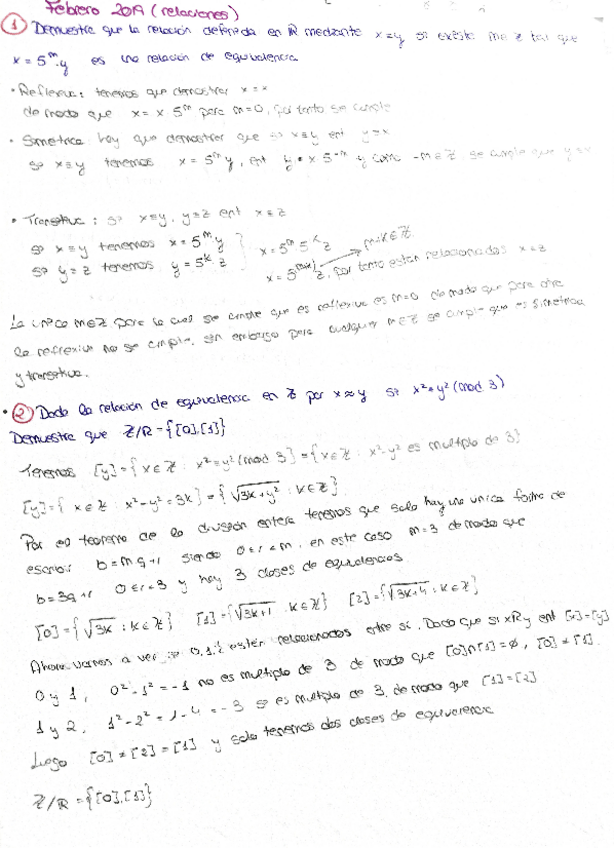 Febrero 2019 (relaciones)
① Demuestra que la relación definida en ℝ mediante x≡y si existe m∈ℤ tal que
x = 5^m·y es una relación de equivalencia
• Reflexiva: tenemos que demostrar x≡x
de modo que x = x·5^m para m=0, por tanto se cumple
• Simétrica: hay que demostrar que si x≡y ent y≡x
si x≡y tenemos x = 5^m y, ent y = x 5^-m y como -m∈ℤ se cumple que y≡x
• Transitiva: si x≡y, y≡z ent x≡z
si x≡y tenemos x = 5^m y } x = 5^m 5^k z m+k∈ℤ
si y≡z tenemos y = 5^k z } x = 5^(m+k) z, por tanto están relacionados x≡z
La única m∈ℤ para la cual se cumple que es reflexiva es m=0 de modo que para otra
la reflexiva no se cumple, sin embargo para cualquier m∈ℤ se cumple que es simétrica
y transitiva.
• ② Dada la relación de equivalencia en ℤ por x≈y si x²=y² (mod 3)
Demuestra que ℤ/R = {[0],[1]}
Tenemos [y]={x∈ℤ : x²=y² (mod 3)} = {x∈ℤ : x²-y² es multiplo de 3}
[y]={x∈ℤ : x²-y²=3k} = {√3k+y² : k∈ℤ}
Por el teorema de la división entera tenemos que solo hay una unica forma de
escribir b=mq+r siendo 0≤r<m, en este caso m=3 de modo que
b=3q+r 0≤r<3 y hay 3 clases de equivalencias
[0]={√3k : k∈ℤ} [1]={√3k+1 : k∈ℤ} [2]={√3k+4 : k∈ℤ}
Ahora vamos a ver si 0,1,2 están relacionados entre si. Dado que si xRy ent [x]=[y]
0 y 1, 0²-1²=-1 no es multiplo de 3 de modo que [0]∩[1]=∅, [0]≠[1].
1 y 2, 1²-2²=1-4=-3 si es multiplo de 3, de modo que [1]=[2]
Luego [0]≠[2]=[1] y solo tenemos dos clases de equivalencia
ℤ/R={[0],[1]}